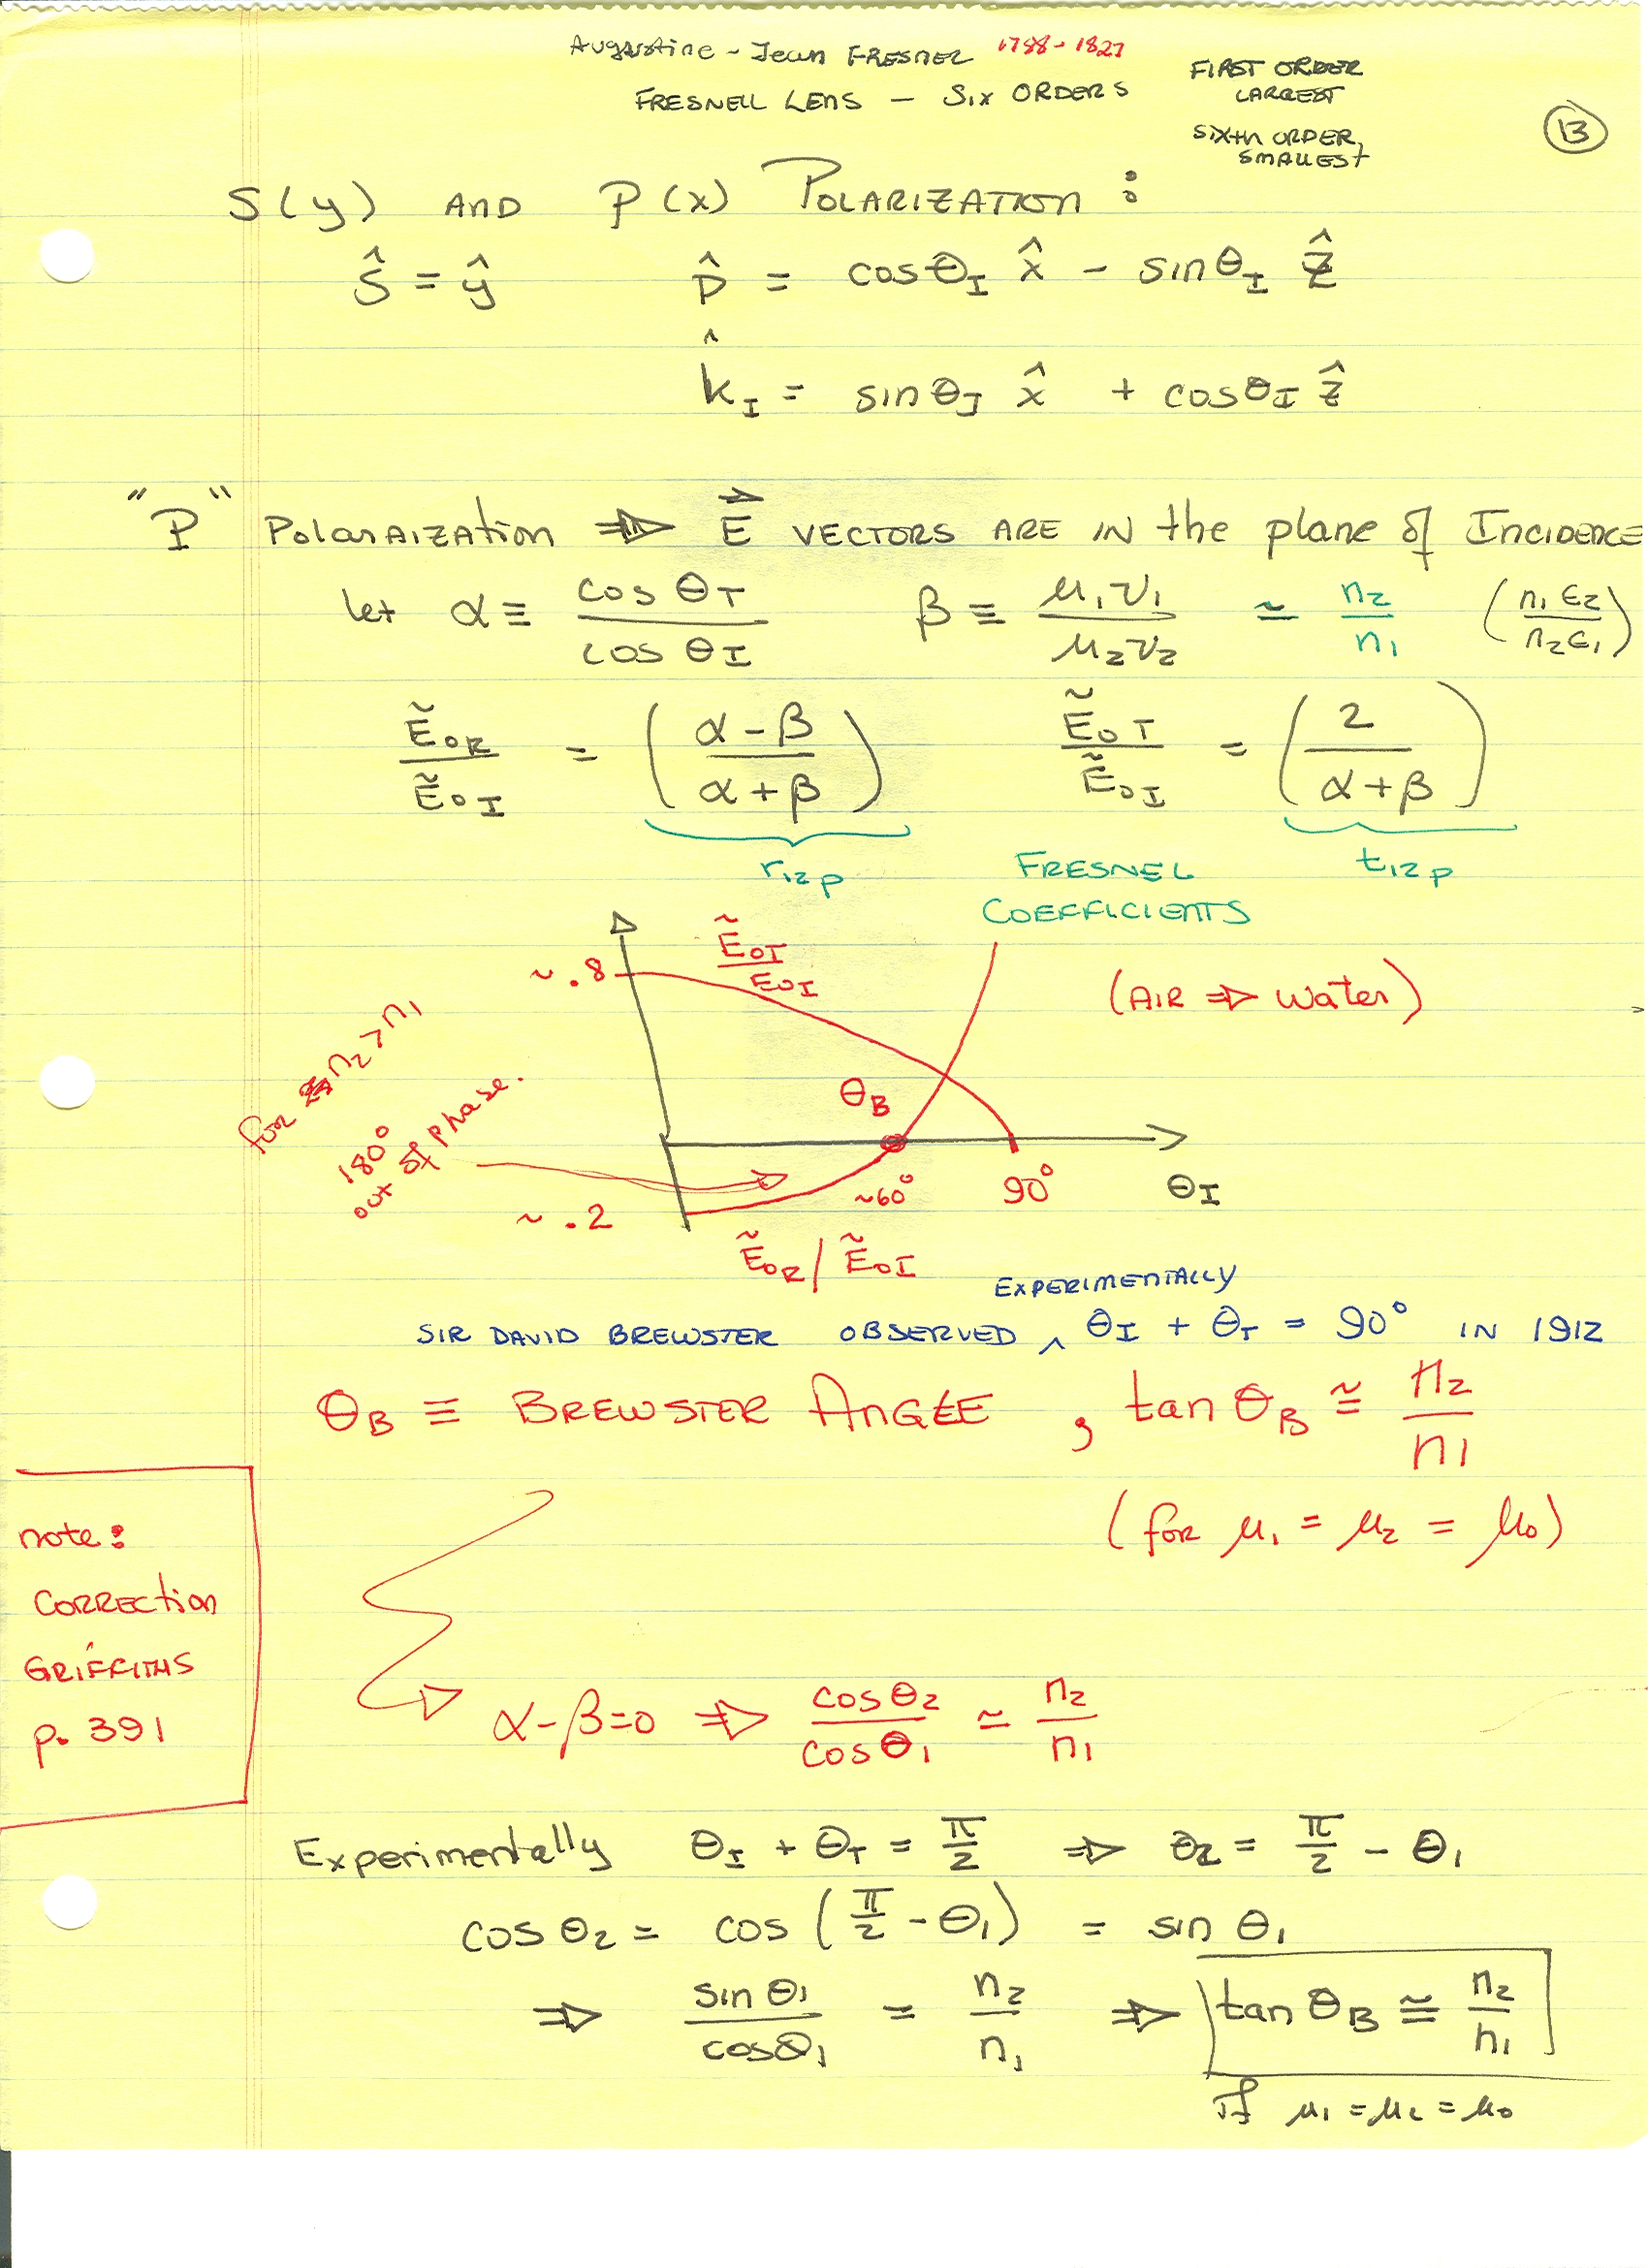 Augustine - Jean FRESNEL 1788-1827
FRESNELL LENS — SIX ORDERS
FIRST ORDER
LARGEST
SIXTH ORDER,
SMALLEST
13
S(y) AND P(x) POLARIZATION :
ŝ = ŷ p̂ = cosθ_I x̂ - sinθ_I ẑ
k̂_I = sinθ_I x̂ + cosθ_I ẑ
"P" PolarAIZAtion ⇒ E⃗ VECTORS ARE IN the plane of INCIDENCE
let α ≡ cos θ_T / cos θ_I β ≡ μ₁v₁ / μ₂v₂ ≃ n₂ / n₁ (n₁ε₂ / n₂ε₁)
Ẽ_OR / Ẽ_OI = (α - β / α + β) Ẽ_OT / Ẽ_OI = (2 / α + β)
r₁₂p t₁₂p
FRESNEL
COEFFICIENTS
Ẽ_OT / E_OI
~ .8
(AIR ⇒ water)
for n₂ > n₁
180°
out of phase.
θ_B
~60° 90° θ_I
~ .2
Ẽ_OR / Ẽ_OI
EXPERIMENTALLY
SIR DAVID BREWSTER OBSERVED ‸ θ_I + θ_T = 90° IN 1912
θ_B ≡ BREWSTER ANGLE , tan θ_B ≅ n₂ / n₁
(for μ₁ = μ₂ = μ₀)
note:
CORRECTION
GRIFFITHS
p. 391
α - β = 0 ⇒ cos θ₂ / cos θ₁ ≃ n₂ / n₁
Experimentally θ_I + θ_T = π/2 ⇒ θ₂ = π/2 - θ₁
cos θ₂ = cos (π/2 - θ₁) = sin θ₁
⇒ sin θ₁ / cos θ₁ = n₂ / n₁ ⇒ tan θ_B ≅ n₂ / n₁
If μ₁ = μ₂ = μ₀